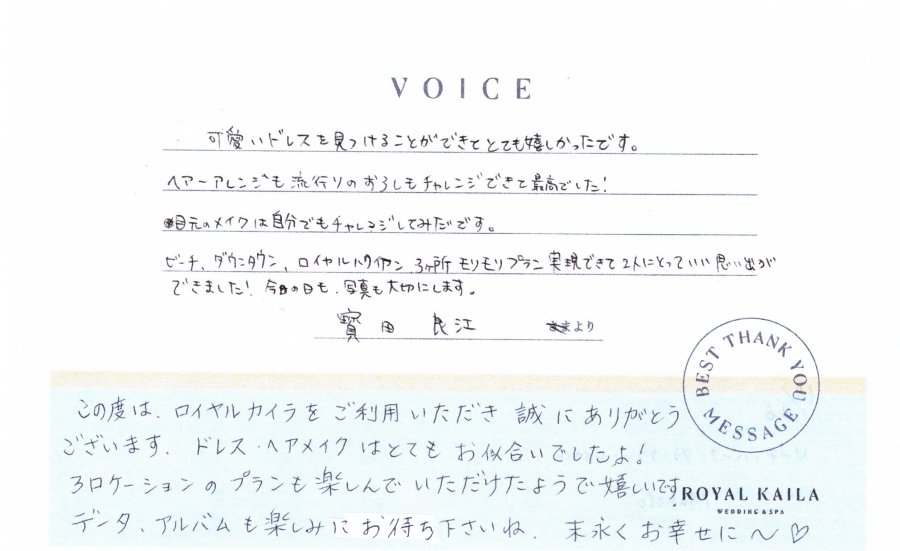 VOICE
可愛いドレスを見つけることができてとても嬉しかったです。
ヘアーアレンジも流行りのおろしもチャレンジできて最高でした!
目元のメイクは自分でもチャレンジしてみたです。
ビーチ、ダウンタウン、ロイヤルハワイアン 3ヶ所 モリモリプラン実現できて2人にとっていい思い出が
できました! 今日の日も、写真も大切にします。
寳田 良江 より
BEST THANK YOU MESSAGE
この度は、ロイヤルカイラをご利用いただき誠にありがとう
ございます。ドレス・ヘアメイクはとてもお似合いでしたよ!
3ロケーションのプランも楽しんでいただけたようで嬉しいです
ROYAL KAILA
WEDDING & SPA
データ、アルバムも楽しみにお待ち下さいね。末永くお幸せに〜♡